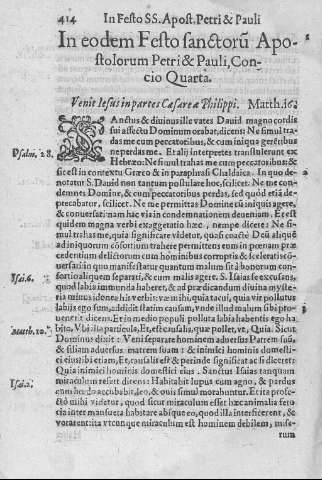 414 In Festo SS. Apost. Petri & Pauli
In eodem Festo sanctorũ Apo-
stolorum Petri & Pauli, Con-
cio Quarta.
Venit Iesus in partes Cæsareæ Philippi. Matth. 16.
SAnctus & diuinus ille vates Dauid magno cordis
sui affectu Dominum orabat, dicens: Ne simul tra-
das me cum peccatoribus, & cum iniqua gerẽtibus
Psalm. 28.
ne perdas me. Et alij interpretes transtulerunt ex
Hebræo: Ne simul trahas me cum peccatoribus; &
sic est in contextu Græco & in paraphrasi Chaldaica. In quo de-
notatur S. Dauid non tantum postulare hoc, scilicet. Ne me con-
demnes Domine, & cum peccatoribus perdas, sed quòd etiã de-
precabatur, scilicet. Ne me permittas Domine cũ iniquis agere,
& conuersari: nam hac via in condemnationem deueniam. Et est
quidem magna verbi exaggeratio hæc, nempe dicere: Ne si-
mul trahas me, quia significare videtur, quòd
ad iniquorum cõsortium trahere permittens eum in pœnam præ-
cedentium delictorum cum hominibus corruptis & sceleratis cõ-
uersari in quo manifestatur quantum malum sit à bonorum con-
Isai. 6.
sortio aliquem separari, & cum malis agere. S. Isaias se excusans,
quod labia immunda haberet, & ad prædicandum diuina myste-
ria minus idonea his verbis: væ mihi, quia tacui, quia vir pollutus
labijs ego sum, addidit statim causam, vnde illud malum sibi pro-
uenerit dicens. Et in medio populi polluta labia habentis ego ha-
Matth. 10.
bito, Vbi illa particula, Et, est causalis, quæ pollet, ve, Quia. Sicut
Dominus dixit: Veni separare hominem aduersus Patrem suũ,
& filiam aduersus matrem suam: & inimici hominis domesti-
ci eius: ibi etiam, Et, causalis est & perinde significat ac si diceret:
Quia inimici hominis domestici eius. Sanctus Isaias tanquam
Isai. 1.
miraculum resert dicens: Habitabit lupus cum agno, & pardus
cum hœdo accubabit, leo, & ouis simul morabuntur. Et ita profe-
ctò mihi videtur, quòd sicut miraculum esset hæc animalia fero-
cia inter mansueta habitare absque eo, quod illa interficerent, &
vorarent ita vtcunque miraculum est hominem debilem, mise-
rum